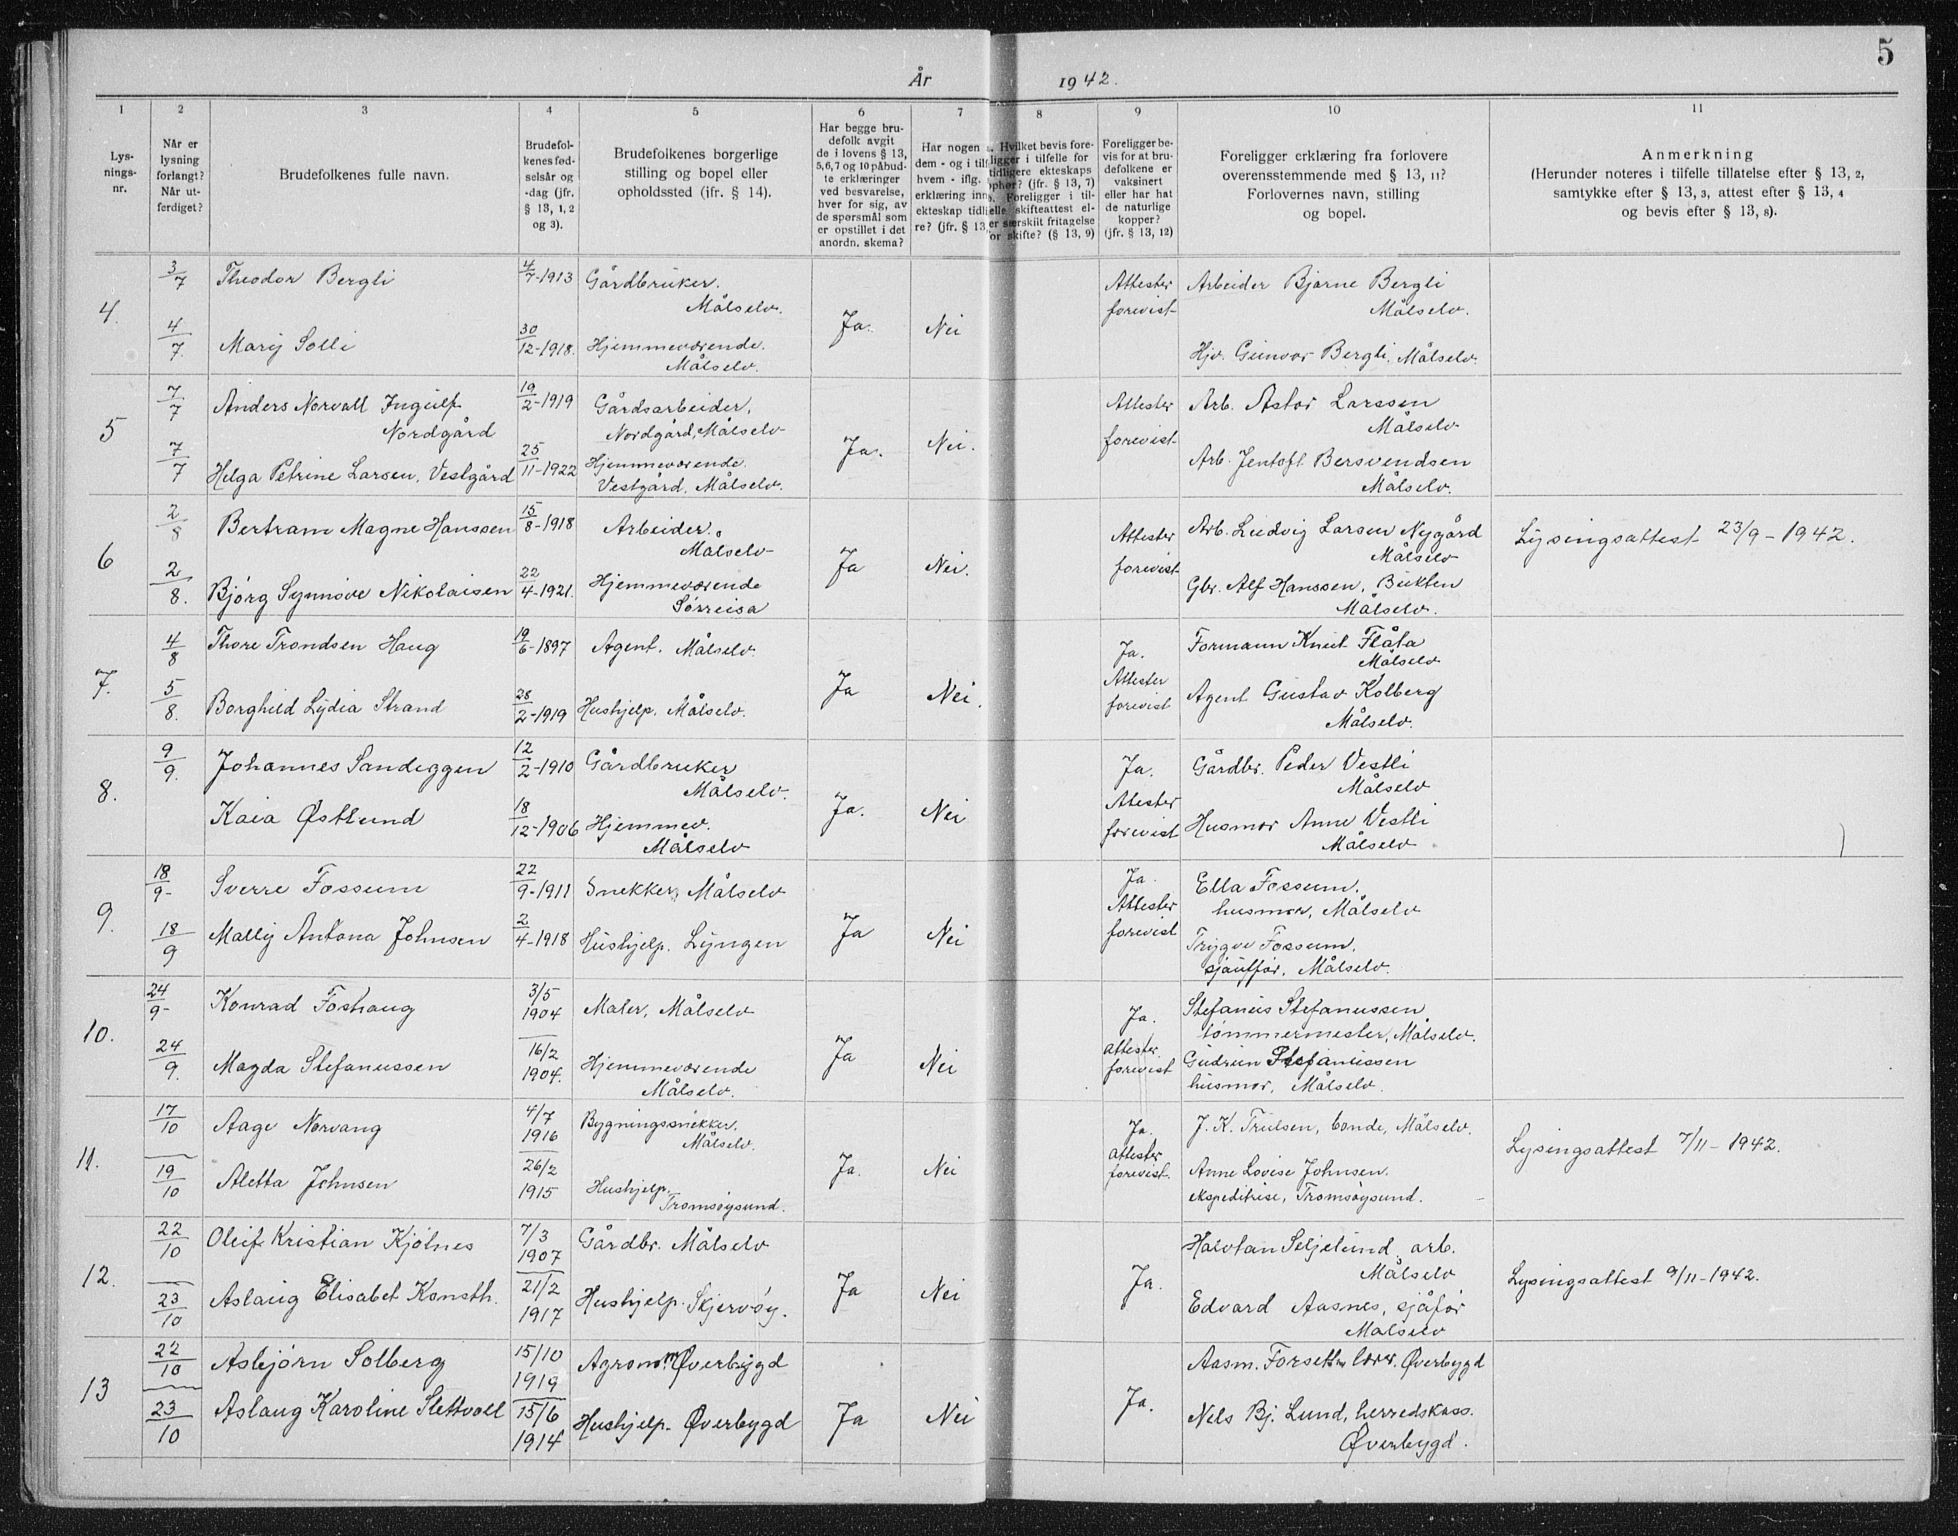 5
År 1942.
1 2 3 4 5 6 7 8 9 10 11
Lys-
nings-
nr.
Når er
lysning
forlangt?
Når ut-
ferdiget?
Brudefolkenes fulle navn.
Brudefol-
kenes fød-
selsår og
-dag (jfr.
§ 13, 1, 2
og 3).
Brudefolkenes borgerlige
stilling og bopel eller
opholdssted (ifr. § 14).
Har begge bru-
defolk avgit
de i lovens § 13,
5, 6, 7 og 10 påbud-
te erklæringer
ved besvarelse,
hver for sig, av
de spørsmål som
er opstillet i det
anordn. skema?
Har nogen
dem - og i tilf
hvem - iflg.
erklæring inn
ekteskap tidl
re? (jfr. § 13,
Hvilket bevis fore-
ligger i tilfelle for
tidligere ekteskaps
ophør? (jfr. § 13, 7)
Foreligger i til-
elle skifteattest el-
er særskilt fritagelse
for skifte? (§ 13, 9)
Foreligger be-
vis for at bru-
defolkene er
vaksinert
eller har hat
de naturlige
kopper?
(jfr. § 13, 12)
Foreligger erklæring fra forlovere
overensstemmende med § 13, 11?
Forlovernes navn, stilling
og bopel.
Anmerkning
(Herunder noteres i tilfelle tillatelse efter § 13, 2,
samtykke efter § 13, 3, attest efter § 13, 4
og bevis efter § 13, 8).
4. 3/7 Theodor Bergli 4/7-1913 Gårdbruker. Målselv. Ja. Nei Attester forevist Arbeider Bjarne Bergli Målselv.
4/7. Mary Solli 30/12-1918. Hjemmeværende. Målselv. Hjv. Gunvor Bergli, Målselv.
5 7/7 Anders Norvall Ingulf Nordgård 19/2-1919 Gårdsarbeider, Nordgård, Målselv Ja. Nei. Attester forevist Arb. Astor Larssen Målselv
7/7 Helga Petrine Larsen, Vestgård 25/11-1922 Hjemmeværende. Vestgård, Målselv. Arb. Jentoft Bersvendsen Målselv.
6 2/8 Bertram Magne Hanssen 15/8-1918 Arbeider. Målselv Ja Nei. Attester forevist Arb. Ludvig Larsen Nygård Målselv Lysingsattest 23/9-1942.
2/8. Bjørg Synnøve Nikolaisen 22/4-1921. Hjemmeværende Sørreisa Gbr. Alf Hanssen, Bukten Målselv.
7. 4/8 Thore Trondsen Haug 19/6-1897 Agent. Målselv. Ja Nei. Ja. Attester forevist Formann Knut Flåta Målselv
5/8. Borghild Lydia Strand 28/2-1919 Hushjelp. Målselv. Agent Gustav Kolberg Målselv.
8. 9/9. Johannes Sandeggen 12/2-1910 Gårdbruker Målselv. Ja. Nei Ja. Attester forevist Gårdbr. Peder Vestli Målselv
Kaia Østlund 18/12-1906 Hjemmev. Målselv Husmor Anne Vestli Målselv
9. 18/9- Sverre Fossum 22/9-1911 Snekker, Målselv Ja Nei Ja. Attester forevist Ella Fossum. husmor, Målselv
18/9 Mally Antona Johnsen 2/4-1918 Hushjelp. Lyngen Trygve Fossum, sjauffør, Målselv.
10. 24/9- Konrad Foshaug 3/5 1904 Maler, Målselv Ja Nei Ja. attester forevist Stefanus Stefanussen tømmermester, Målselv.
24/9. Magda Stefanussen 16/2 1904. Hjemmeværende Målselv. Gudrun Stefanussen husmor, Målselv.
11. 17/10 Aage Norvang 4/7 1916 Bygningssnekker. Målselv. Ja. Nei Ja. attester forevist. J. K. Trulsen, bonde, Målselv. Lysingsattest 7/11-1942.
19/10 Aletta Johnsen 26/2 1915 Hushjelp, Tromsøysund. Anne Lovise Johnsen. ekspeditrise, Tromsøysund.
12. 22/10 Oluf Kristian Kjølnes 7/3 1907 Gårdbr. Målselv Ja Nei Ja. Halvtan Seljelund arb. Målselv Lysingsattest 9/11-1942.
23/10 Aslaug Elisabet Konsth. 21/2 1917 Hushjelp. Skjervøy. Edvard Aasnes, sjåfør Målselv
13 22/10 Asbjørn Solberg 15/10 1919 Agronom Øverbygd Ja Nei Ja. Aasm. Forseth lærer. Øverbygd
23/10 Aslaug Karoline Slettvoll 15/6 1914 Hushjelp. Øverbygd Nels Bj. Lund, herredskass. Øverbygd.